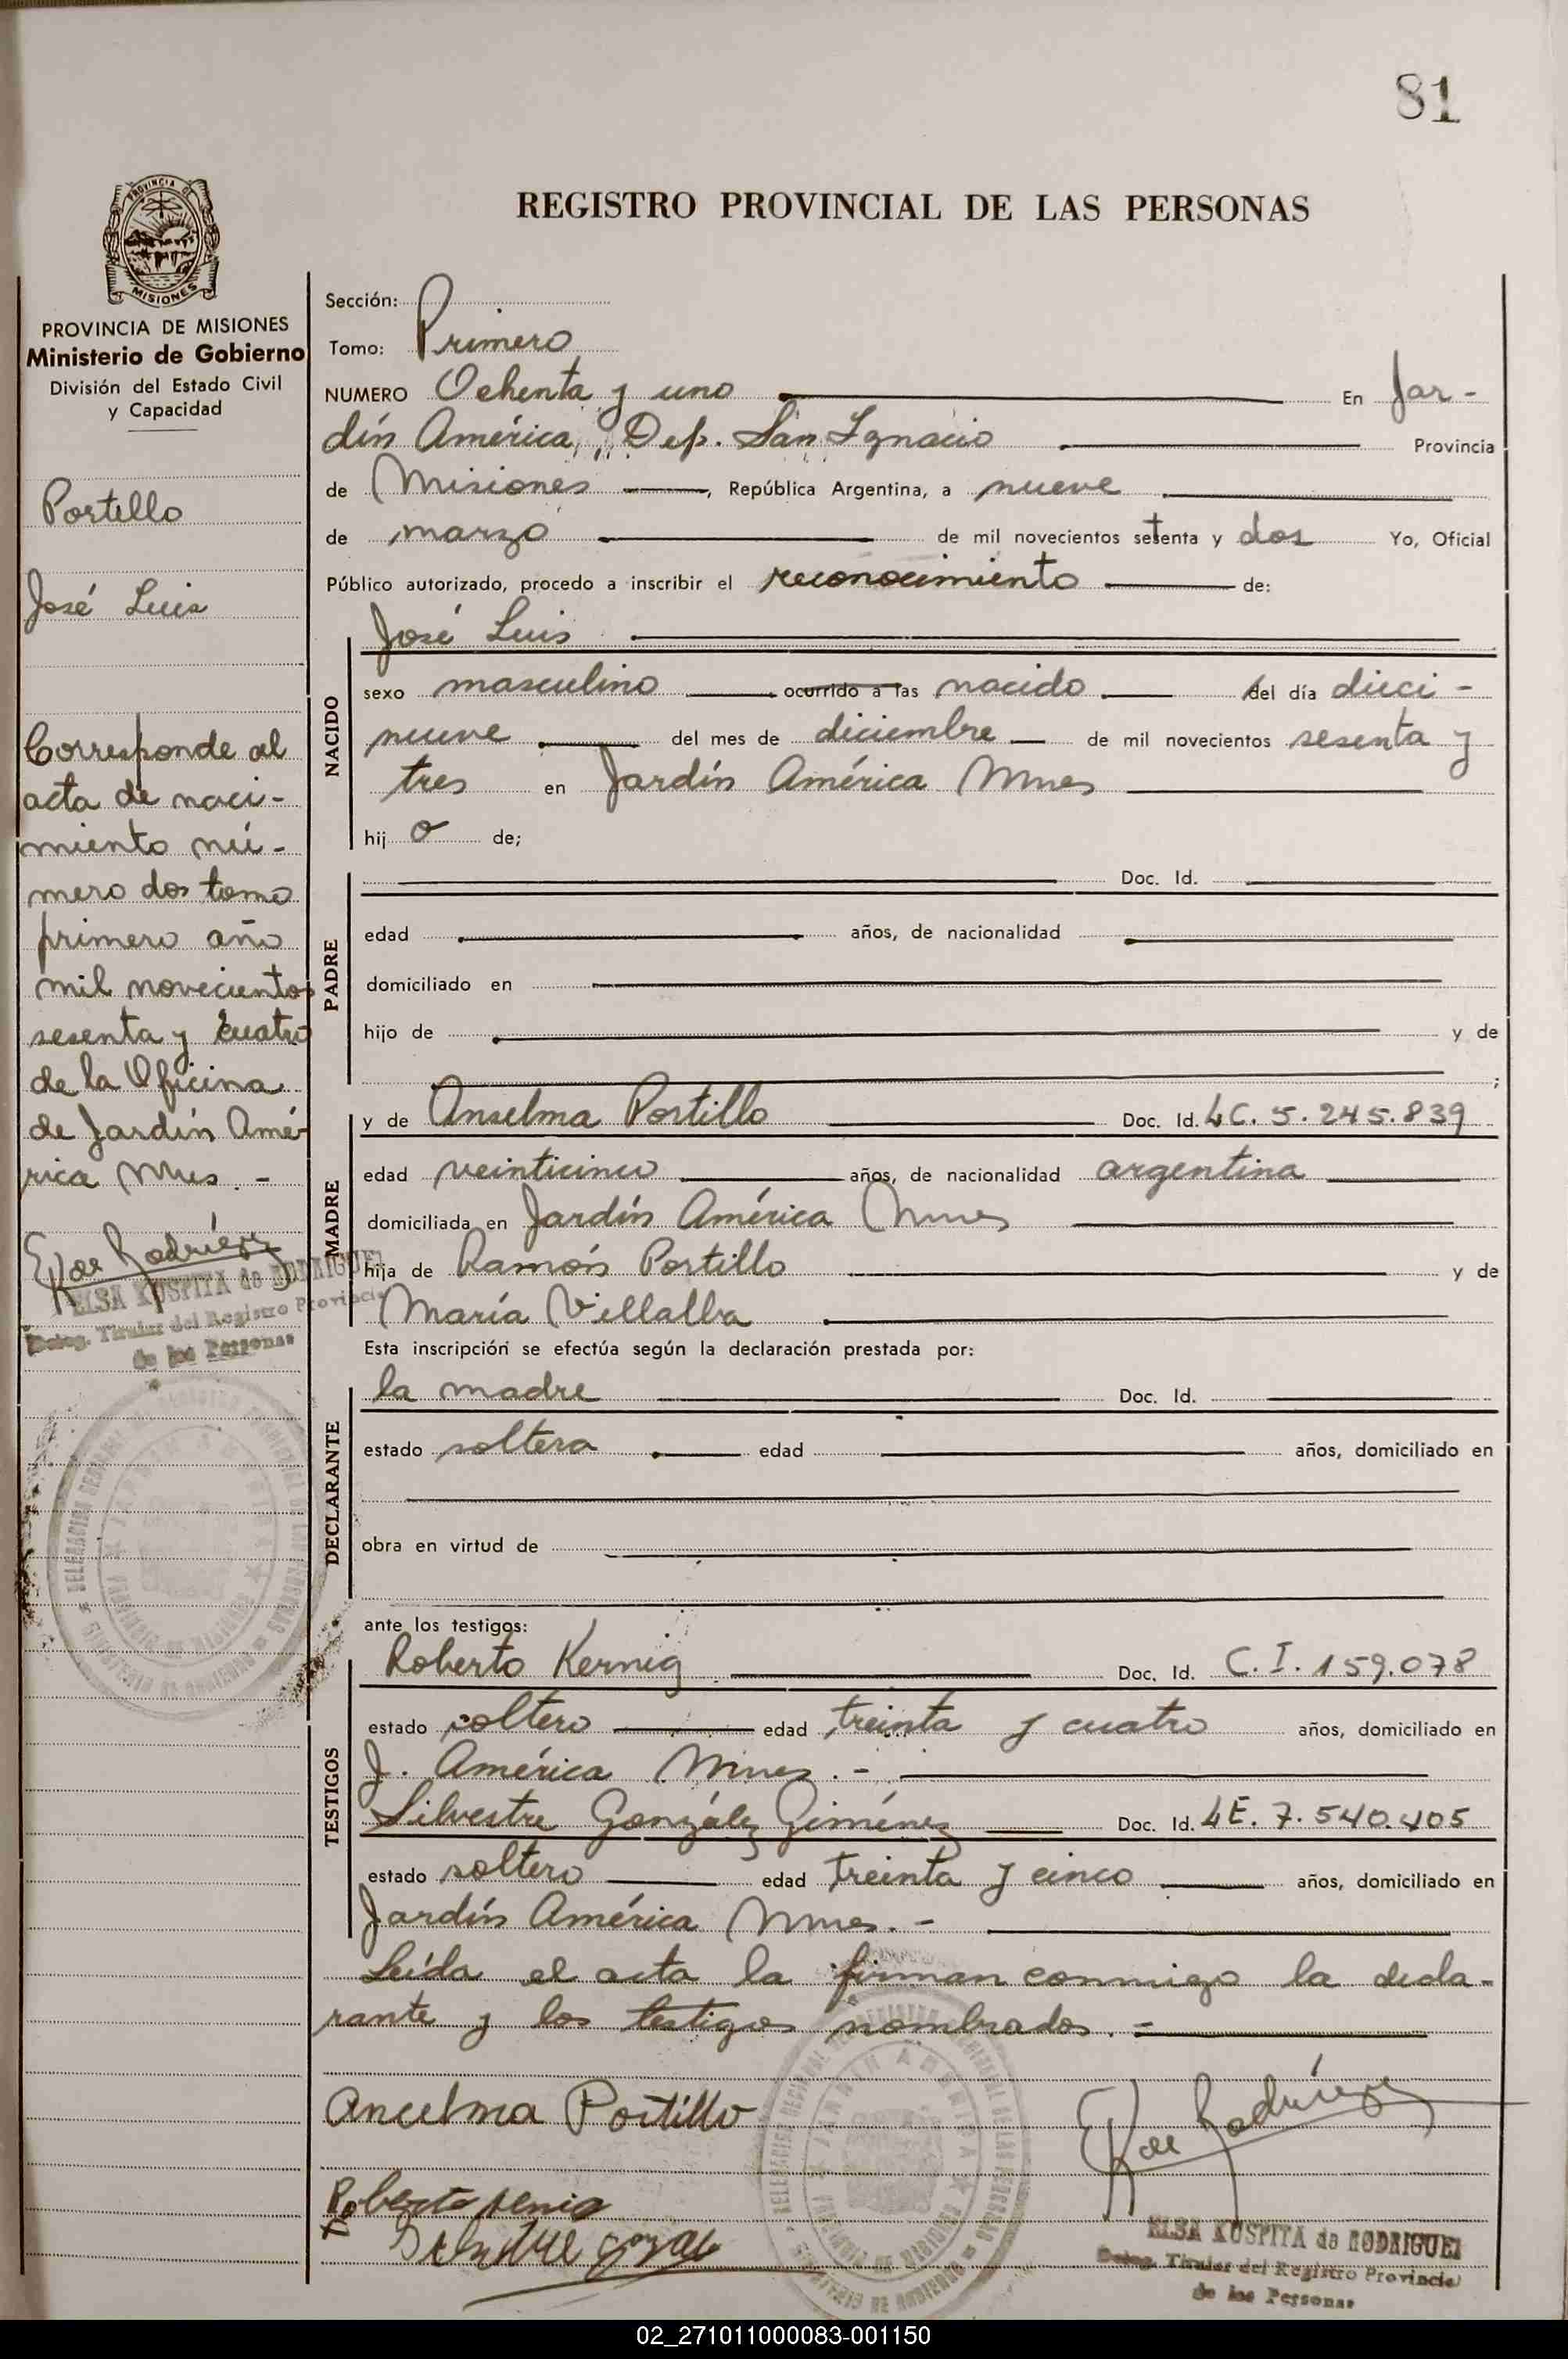 81
REGISTRO PROVINCIAL DE LAS PERSONAS
PROVINCIA DE
MISIONES
PROVINCIA DE MISIONES
Ministerio de Gobierno
División del Estado Civil
y Capacidad
Portillo
José Luis
Corresponde al
acta de naci-
miento nú-
mero dos tomo
primero año
mil novecientos
sesenta y cuatro
de la Oficina
de Jardín Amé-
rica Mnes. -
EK de Rodríguez
ELSA KUSPITA de RODRIGUEZ
Deleg. Titular del Registro Provincial
de las Personas
Sección:
Tomo: Primero
NUMERO Ochenta y uno En Jar-
dín América, Dep. San Ignacio Provincia
de Misiones, República Argentina, a nueve
de marzo de mil novecientos setenta y dos Yo, Oficial
Público autorizado, procedo a inscribir el reconocimiento de:
José Luis
NACIDO
sexo masculino ocurrido a las nacido del día dieci-
nueve del mes de diciembre de mil novecientos sesenta y
tres en Jardín América Mnes
hij o de;
PADRE
Doc. Id.
edad años, de nacionalidad
domiciliado en
hijo de y de
;
MADRE
y de Anselma Portillo Doc. Id. LC. 5.245.839
edad veinticinco años, de nacionalidad argentina
domiciliada en Jardín América Mnes
hija de Ramón Portillo y de
María Villalba
Esta inscripción se efectúa según la declaración prestada por:
DECLARANTE
la madre Doc. Id.
estado soltera edad años, domiciliado en
obra en virtud de
ante los testigos:
TESTIGOS
Roberto Kernig Doc. Id. C.I. 159.078
estado soltero edad treinta y cuatro años, domiciliado en
J. América Mnes. -
Silvestre González Giménez Doc. Id. LE. 7.540.405
estado soltero edad treinta y cinco años, domiciliado en
Jardín América Mnes. -
Leída el acta la firman conmigo la decla-
rante y los testigos nombrados. =
Ancelma Portillo
EK de Rodríguez
Roberto
ELSA KUSPITA de RODRIGUEZ
Deleg. Titular del Registro Provincial
de las Personas
02_271011000083-001150